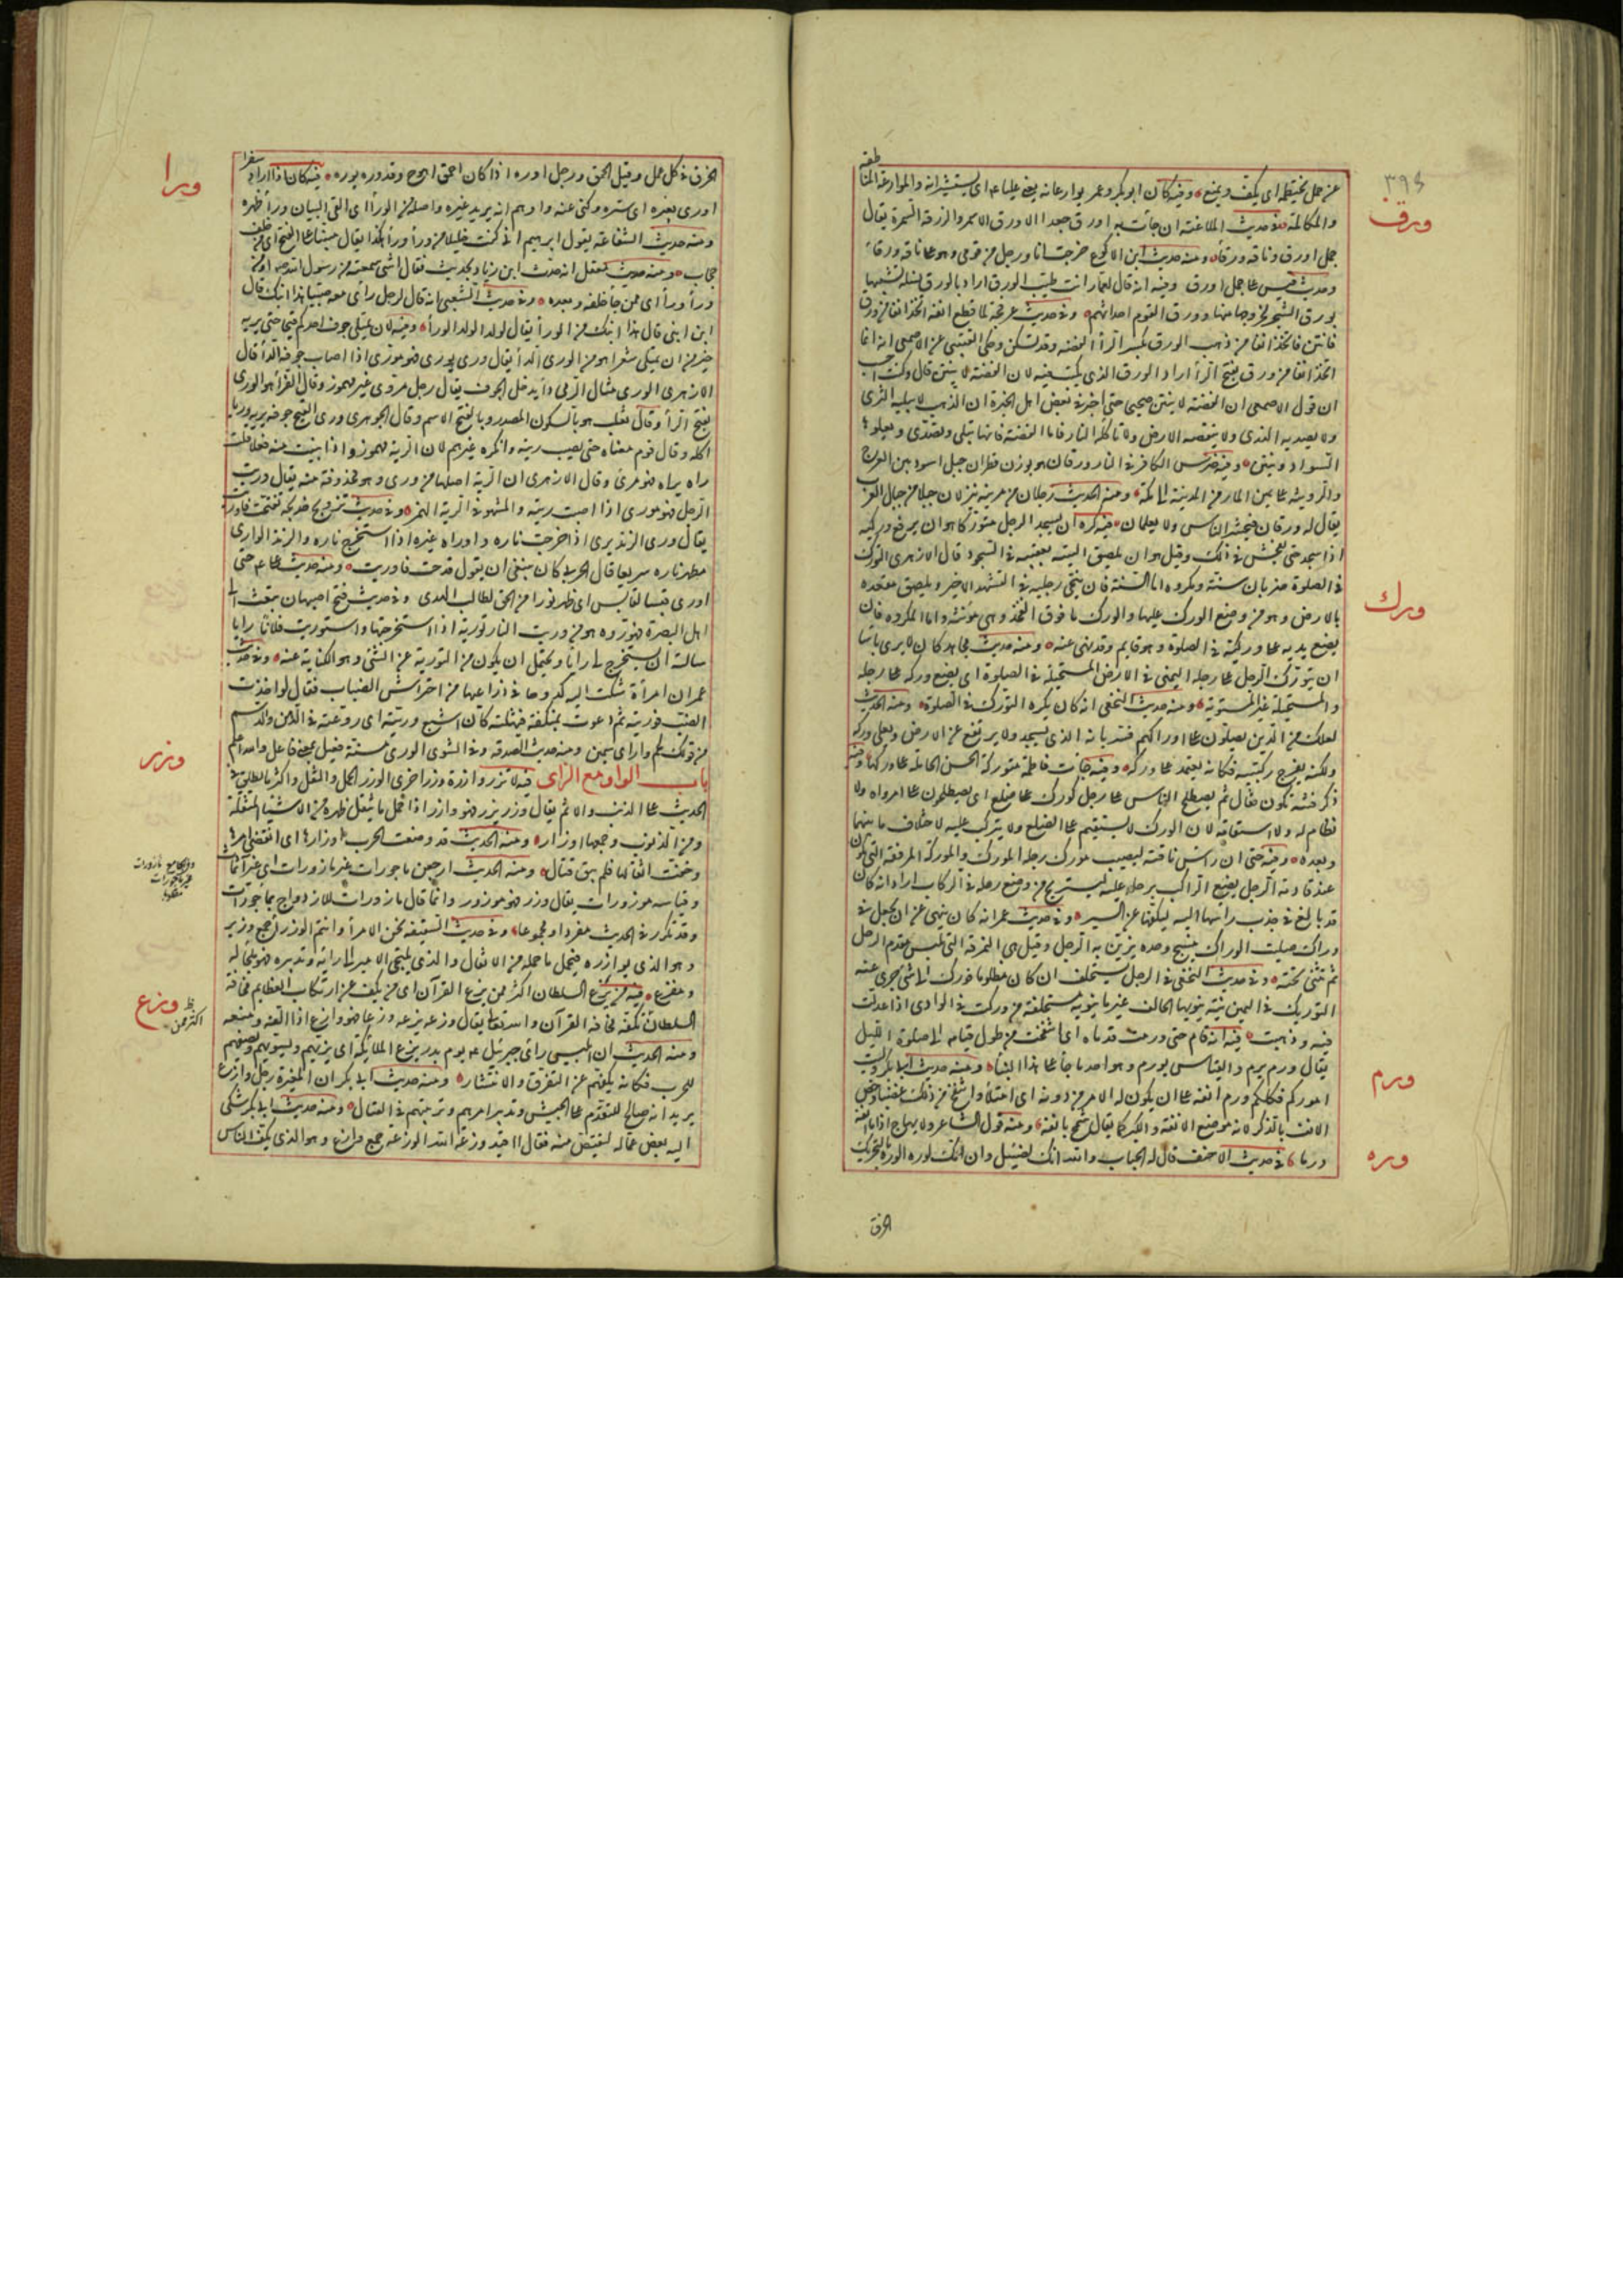 ٣٩٤
عن عمل يختطه اى يكف ويمنع وفيه كان ابو بكر وعمر يوارعانه يعنى عليا اى يستشيرانه والموارعة المناطقة
ورق
والمكالمة وفى حديث الملاعنة ان جاءت به اورق جعدا الاورق الاسمر والورقة السمرة يقال
جمل اورق وناقة ورقاء ومنه حديث ابن الاكوع خرجت انا ورجل من قومى وهو على ناقة ورقاء
وحديث قس على جمل اورق وفيه انه قال لعمار انت طيب الورق اراد بالورق نسله تشبيها
بورق الشجر لخروجها منها وورق القوم احداثهم وفى حديث عرفجة لما قطع انفه اتخذ انفا من ورق
فانتن فاتخذ انفا من ذهب الورق بكسر الراء الفضة وقد تسكن وحكى القتيبى عن الاصمعى انه انما
اتخذ انفا من ورق بفتح الراء اراد الورق الذى يكتب فيه لان الفضة لا تنتن قال وكنت احسب
ان قول الاصمعى ان الفضة لا تنتن صحيح حتى اخبرنى بعض اهل الخبرة ان الذهب لا يبليه الثرى
ولا يصديه الندى ولا تنقصه الارض ولا تاكله النار فاما الفضة فانها تبلى وتصدى ويعلوها
السواد وتنتن وفيه ضرس الكافر فى النار ورقان هو بوزن قطران جبل اسود بين العرج
والرويثة على يمين المار من المدينة الى مكة ومنه الحديث رجلان من مزينة ينزلان جبلا من جبال العرب
يقال له ورقان فيحشر الناس ولا يعلمان فيه كره ان يسجد الرجل متوركا هو ان يرفع وركيه
ورك
اذا سجد حتى يفحش فى ذلك وقيل هو ان يلصق اليتيه بعقبيه فى السجود قال الازهرى التورك
فى الصلوة ضربان سنة ومكروه اما السنة فان ينحى رجليه فى التشهد الاخير ويلصق مقعده
بالارض وهو من وضع الورك عليها والورك ما فوق الفخذ وهى مؤنثة واما المكروه فان
يضع يديه على وركيه فى الصلوة وهو قايم وقد نهى عنه ومنه حديث مجاهد كان لا يرى باسا
ان يتورك الرجل على رجله اليمنى فى الارض المستحيلة فى الصلوة اى يضع وركه على رجله
والمستحيلة غير المستوية ومنه حديث النخعى انه كان يكره التورك فى الصلوة ومنه الحديث
لعلك من الذين يصلون على اوراكهم فسر بانه الذى يسجد ولا يرتفع عن الارض ويعلى وركه
ولكنه يفرج ركبتيه فكانه يعتمد على وركه وفيه جاءت فاطمة متوركة الحسن اى حاملته على وركها وفيه
ذكر فتنة تكون فقال ثم يصطلح الناس على رجل كورك على ضلع اى يصطلحون على امر واه لا
نظام له ولا استقامة لان الورك لا يستقيم على الضلع ولا يتركب عليه لاختلاف ما بينهما
وبعده وفيه حتى ان راس ناقته ليصيب مورك رحله المورك والموركة المرفقة التى تكون
عند قادمة الرحل يضع الراكب رجله عليه ليستريح من وضع رجله فى الركاب اراد انه كان
قد بالغ فى جذب راسها اليه ليكفها عن السير وفى حديث عمر انه كان ينهى عن ان يجعل فى
وراك صليب الوراك ينسج وحده يزين به الرحل وقيل هى النمرقة التى تلبس مقدم الرحل
ثم تثنى تحته وفى حديث النخعى فى الرجل يستحلف ان كان مظلوما فورك الى شئ جزى عنه
التوريك فى اليمين نية ينويها الحالف غير ما ينويه مستحلفه من وركت فى الوادى اذا عدلت
فيه وذهبت فيه انه قام حتى ورمت قدماه اى انتفخت من طول قيامه فى صلوة الليل
ورم
يقال ورم يرم والقياس يورم وهو احد ما جاء على هذا البناء ومنه حديث ابى بكر وليت
اموركم فكلكم ورم انفه على ان يكون له الامر من دونه اى امتلأ وانتفخ من ذلك غضبا وخص
الانف بالذكر لانه موضع الانفة والكبر كما يقال شمخ بانفه ومنه قول الشاعر ولا يهاج اذا ما انفه
وره
ورما فى حديث الاحنف قال له الحباب والله انك لضئيل وان امك لورهاء الوره بالتحريك
الخرق
الخرق فى كل عمل وقيل الحمق ورجل اوره اذا كان احمق اهوج وقد وره يوره فيه كان اذا اراد سفرا
ورا
اورى بغيره اى ستره وكنى عنه واوهم انه يريد غيره واصله من الوراء اى القى البيان وراء ظهره
ومنه حديث الشفاعة يقول ابرهيم انى كنت خليلا من وراء وراء هكذا يقال مبنيا على الفتح اى من خلف
حجاب ومنه حديث معقل انه حدث ابن زياد بحديث فقال اشئ سمعته من رسول الله او من
وراء وراء اى ممن جاء خلفه وبعده وفى حديث الشعبى انه قال لرجل رأى معه صبيا هذا ابنك قال
ابن ابنى قال هذا ابنك من الوراء يقال لولد الولد الوراء وفيه لان يمتلى جوف احدكم قيحا حتى يريه
خير من ان يمتلى شعرا هو من الورى الداء يقال ورى يورى فهو مورى اذا اصاب جوفه الداء قال
الازهرى الورى مثال الرمى داء يدخل الجوف يقال رجل مورى غير مهموز وقال الفراء هو الورى
بفتح الراء وقال ثعلب هو بالسكون المصدر وبالفتح الاسم وقال الجوهرى ورى القيح جوفه يريه وريا
اكله وقال قوم معناه حتى يصيب ريته وانكره غيرهم لان الرية مهموزة واذا بنيت منه فعلا قلت
راه يراه فهو مرئى وقال الازهرى ان الرية اصلها من ورى وهو محذوفة منه يقال وريت
الرجل فهو مورى اذا اصبت ريته والمشهور فى الرية الهمز وفى حديث تزويج خديجة نفخت فاوريت
يقال ورى الزند يرى اذا خرجت ناره واوراه غيره اذا استخرج ناره والزند الوارى
مظهر ناره سريعا قال الحربى كان ينبغى ان يقول قدحت فاوريت ومنه حديث على حتى
اورى قبسا لقابس اى اظهر نورا من الحق لطالب الهدى وفى حديث فتح اصبهان تبعث الى
اهل البصرة فيوروه هو من وريت النار تورية اذا استخرجتها واستوريت فلانا رايا
سالته ان يستخرج لى رايا ويحتمل ان يكون من التورية عن الشئ وهو الكناية عنه وفى حديث
عمر ان امراة شكت اليه كدوحا فى ذراعيها من احتراش الضباب فقال لو اخذت
الضب فوريته ثم دعوت بمكتفة فثملته كان اشبع وريته اى روغته فى الدهن والدسم
من قولك لحم وار اى سمين ومنه حديث الصدقة وفى الشوى الورى مسنة فعيل بمعنى فاعل والله اعلم
وزر
باب الواو مع الزاى فيه لا تزر وازرة وزر اخرى الوزر الحمل والثقل واكثر ما يطلق فى
الحديث على الذنب والاثم يقال وزر يزر فهو وازر اذا حمل ما يثقل ظهره من الاشياء المثقلة
ومن الذنوب وجمعها اوزار ومنه الحديث قد وضعت الحرب اوزارها اى انقضى امرها
وخفت اثقالها فلم يبق قتال ومنه الحديث ارجعن ماجورات غير مازورات اى غير آثمات
وقياسه موزورات يقال وزر فهو موزور وانما قال مازورات للازدواج بماجورات
وقد تكرر فى الحديث مفردا ومجموعا وفى حديث السقيفة نحن الامراء وانتم الوزراء جمع وزير
وهو الذى يوازره فيحمل ما حمله من الاثقال والذى يلتجى الامير الى رايه وتدبيره فهو ملجأ له
وزع
ومفزع فيه من يزع السلطان اكثر ممن يزع القرآن اى من يكف عن ارتكاب العظايم مخافة
السلطان اكثر ممن يكفه مخافة القرآن والله تعالى يقال وزعه يزعه وزعا فهو وازع اذا كفه ومنعه
ومنه الحديث ان ابليس رأى جبرئيل يوم بدر يزع الملائكة اى يرتبهم ويسويهم ويصفهم
للحرب فكانه يكفهم عن التفرق والانتشار ومنه حديث ابى بكر ان المغيرة رجل وازع
يريد انه صالح للتقدم على الجيش وتدبير امرهم وترتيبهم فى القتال ومنه حديث ابى بكر شكى
اليه بعض عماله ليقتص منه فقال اقيد وزعة الله الوزعة جمع وازع وهو الذى يكف الناس